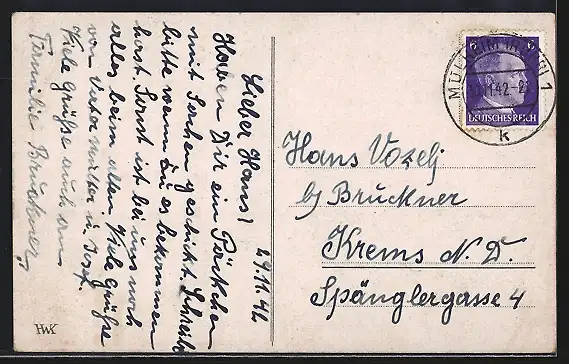 29.11.42
Lieber Hans!
Haben Dir ein Päckchen
mit Sachen geschickt. Schreib
bitte wann du es bekommen
hast. Sonst ist bei uns noch
alles beim alten. Viele Grüße
von Vater Mutter u. Josf.
Viele Grüße auch an
Familie Bruckner
HWK
MÜLHEIM 1
11.42-2
k
DEUTSCHES REICH
Hans Vozelj
by Bruckner
Krems N. D.
Spänglergasse 4